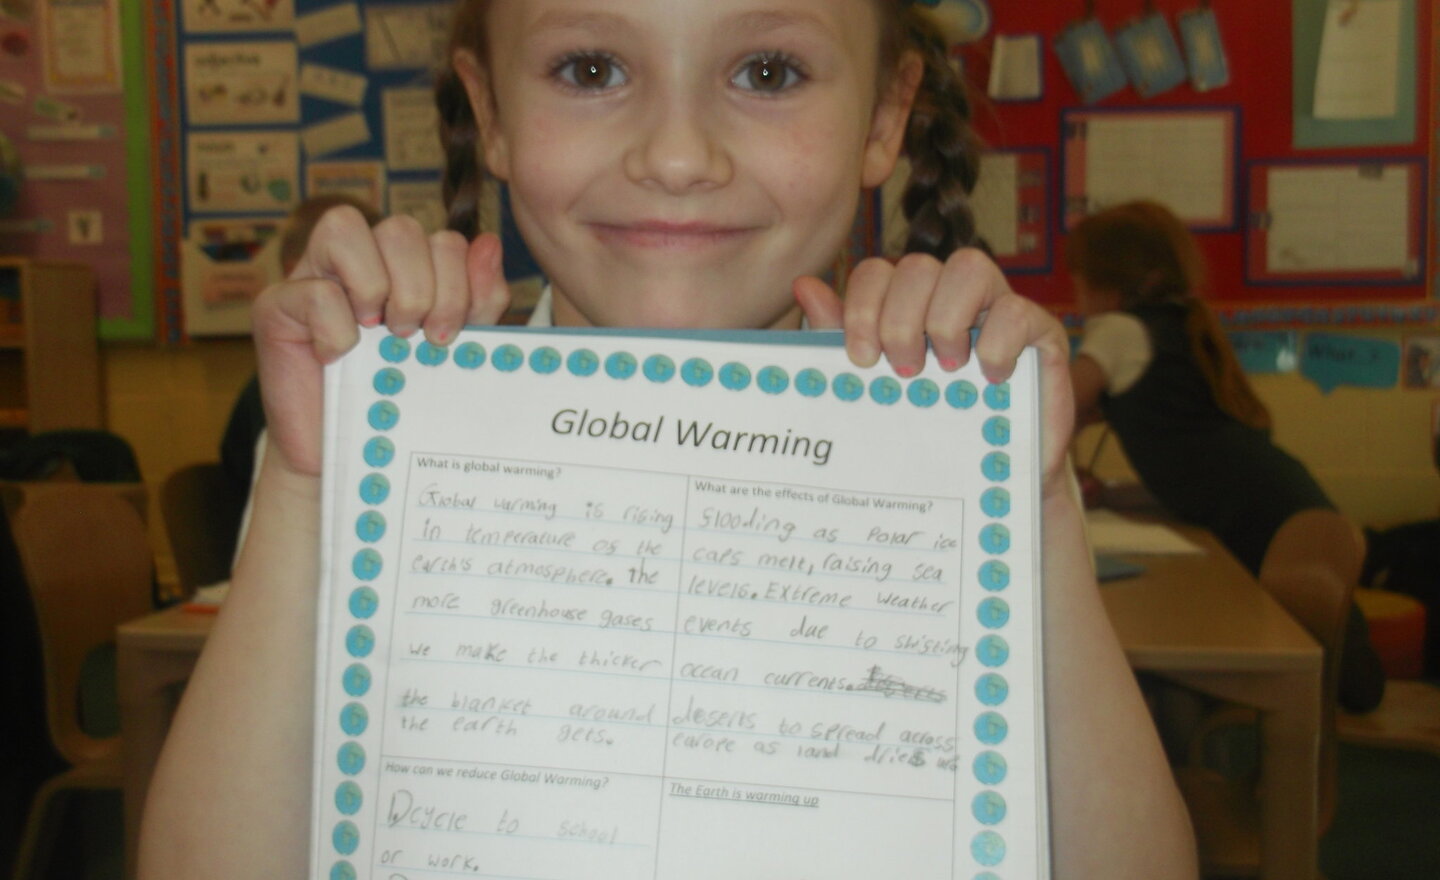 Global Warming
What is global warming?
Global warming is rising
in temperature of the
earth's atmosphere. the
more greenhouse gases
we make the thicker
the blanket around
the earth gets.
What are the effects of Global Warming?
Flooding as Polar ice
caps melt, raising sea
levels. Extreme weather
events due to shifting
ocean currents.
deserts to spread across
europe as land dries up
How can we reduce Global Warming?
cycle to school
or work.
The Earth is warming up
adjective
What ?